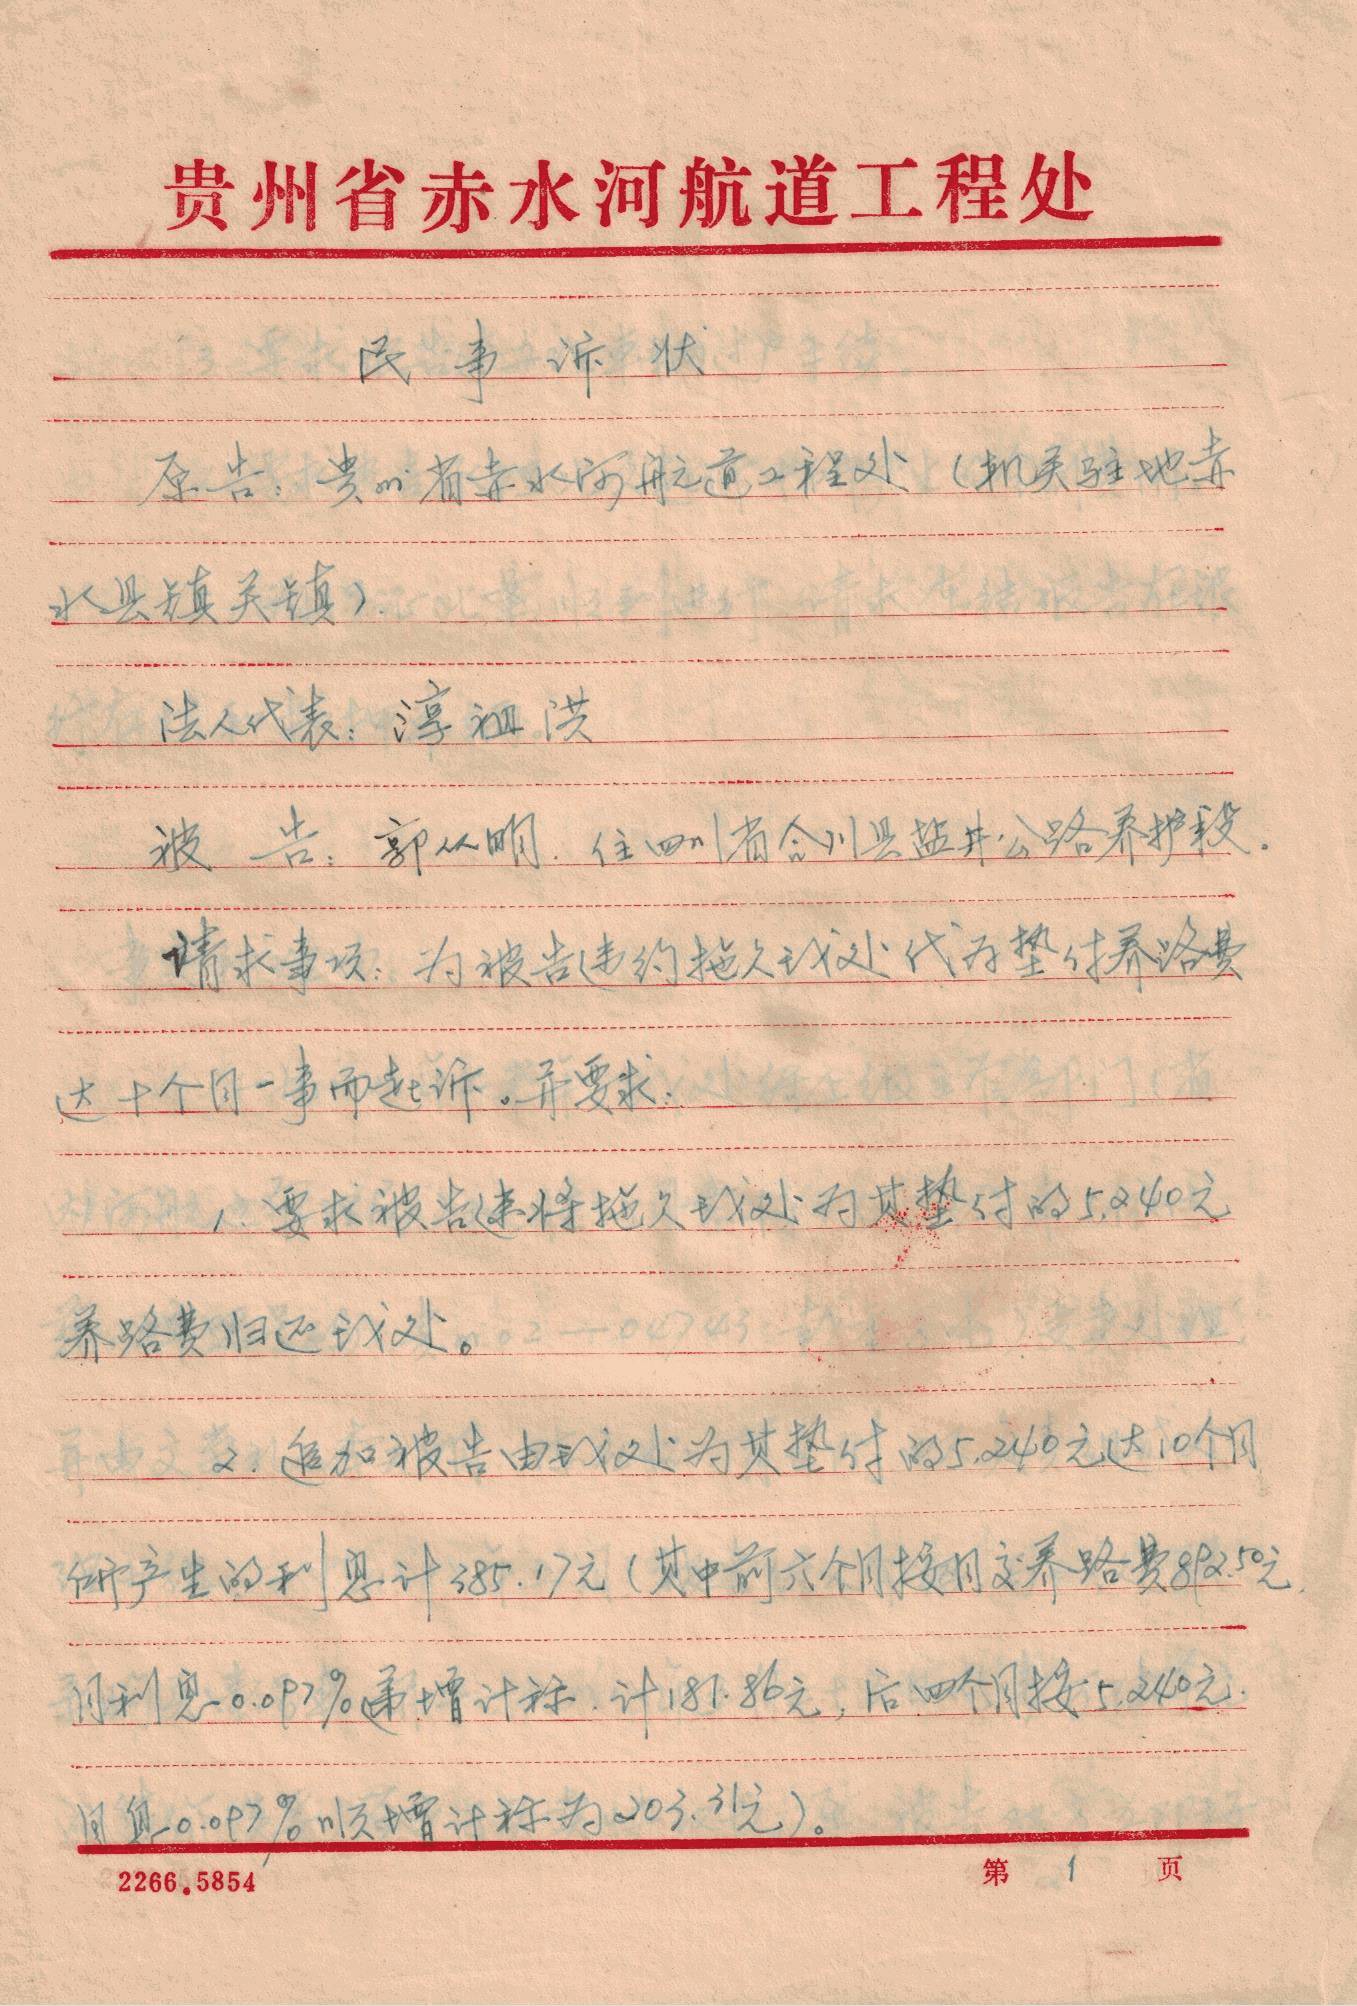 贵州省赤水河航道工程处
民事诉状
原告：贵州省赤水河航道工程处（机关驻地赤
水县镇关镇）.
法人代表：淳祖洪
被 告：郭从明. 住四川省合川县盐井公路养护段。
请求事项：为被告违约拖欠我处代为垫付养路费
达十个月一事而起诉。并要求：
1. 要求被告速将拖欠我处为其垫付的5.240元
养路费归还我处。
2. 追加被告由我处为其垫付的5.240元达10个月
所产生的利息计385.17元（其中前六个月按月交养路费892.50元.
月利息0.097%递增计称.计181.86元，后四个月按5.240元.
月息0.097%顺增计称为203.31元）。
2266.5854
第 1 页